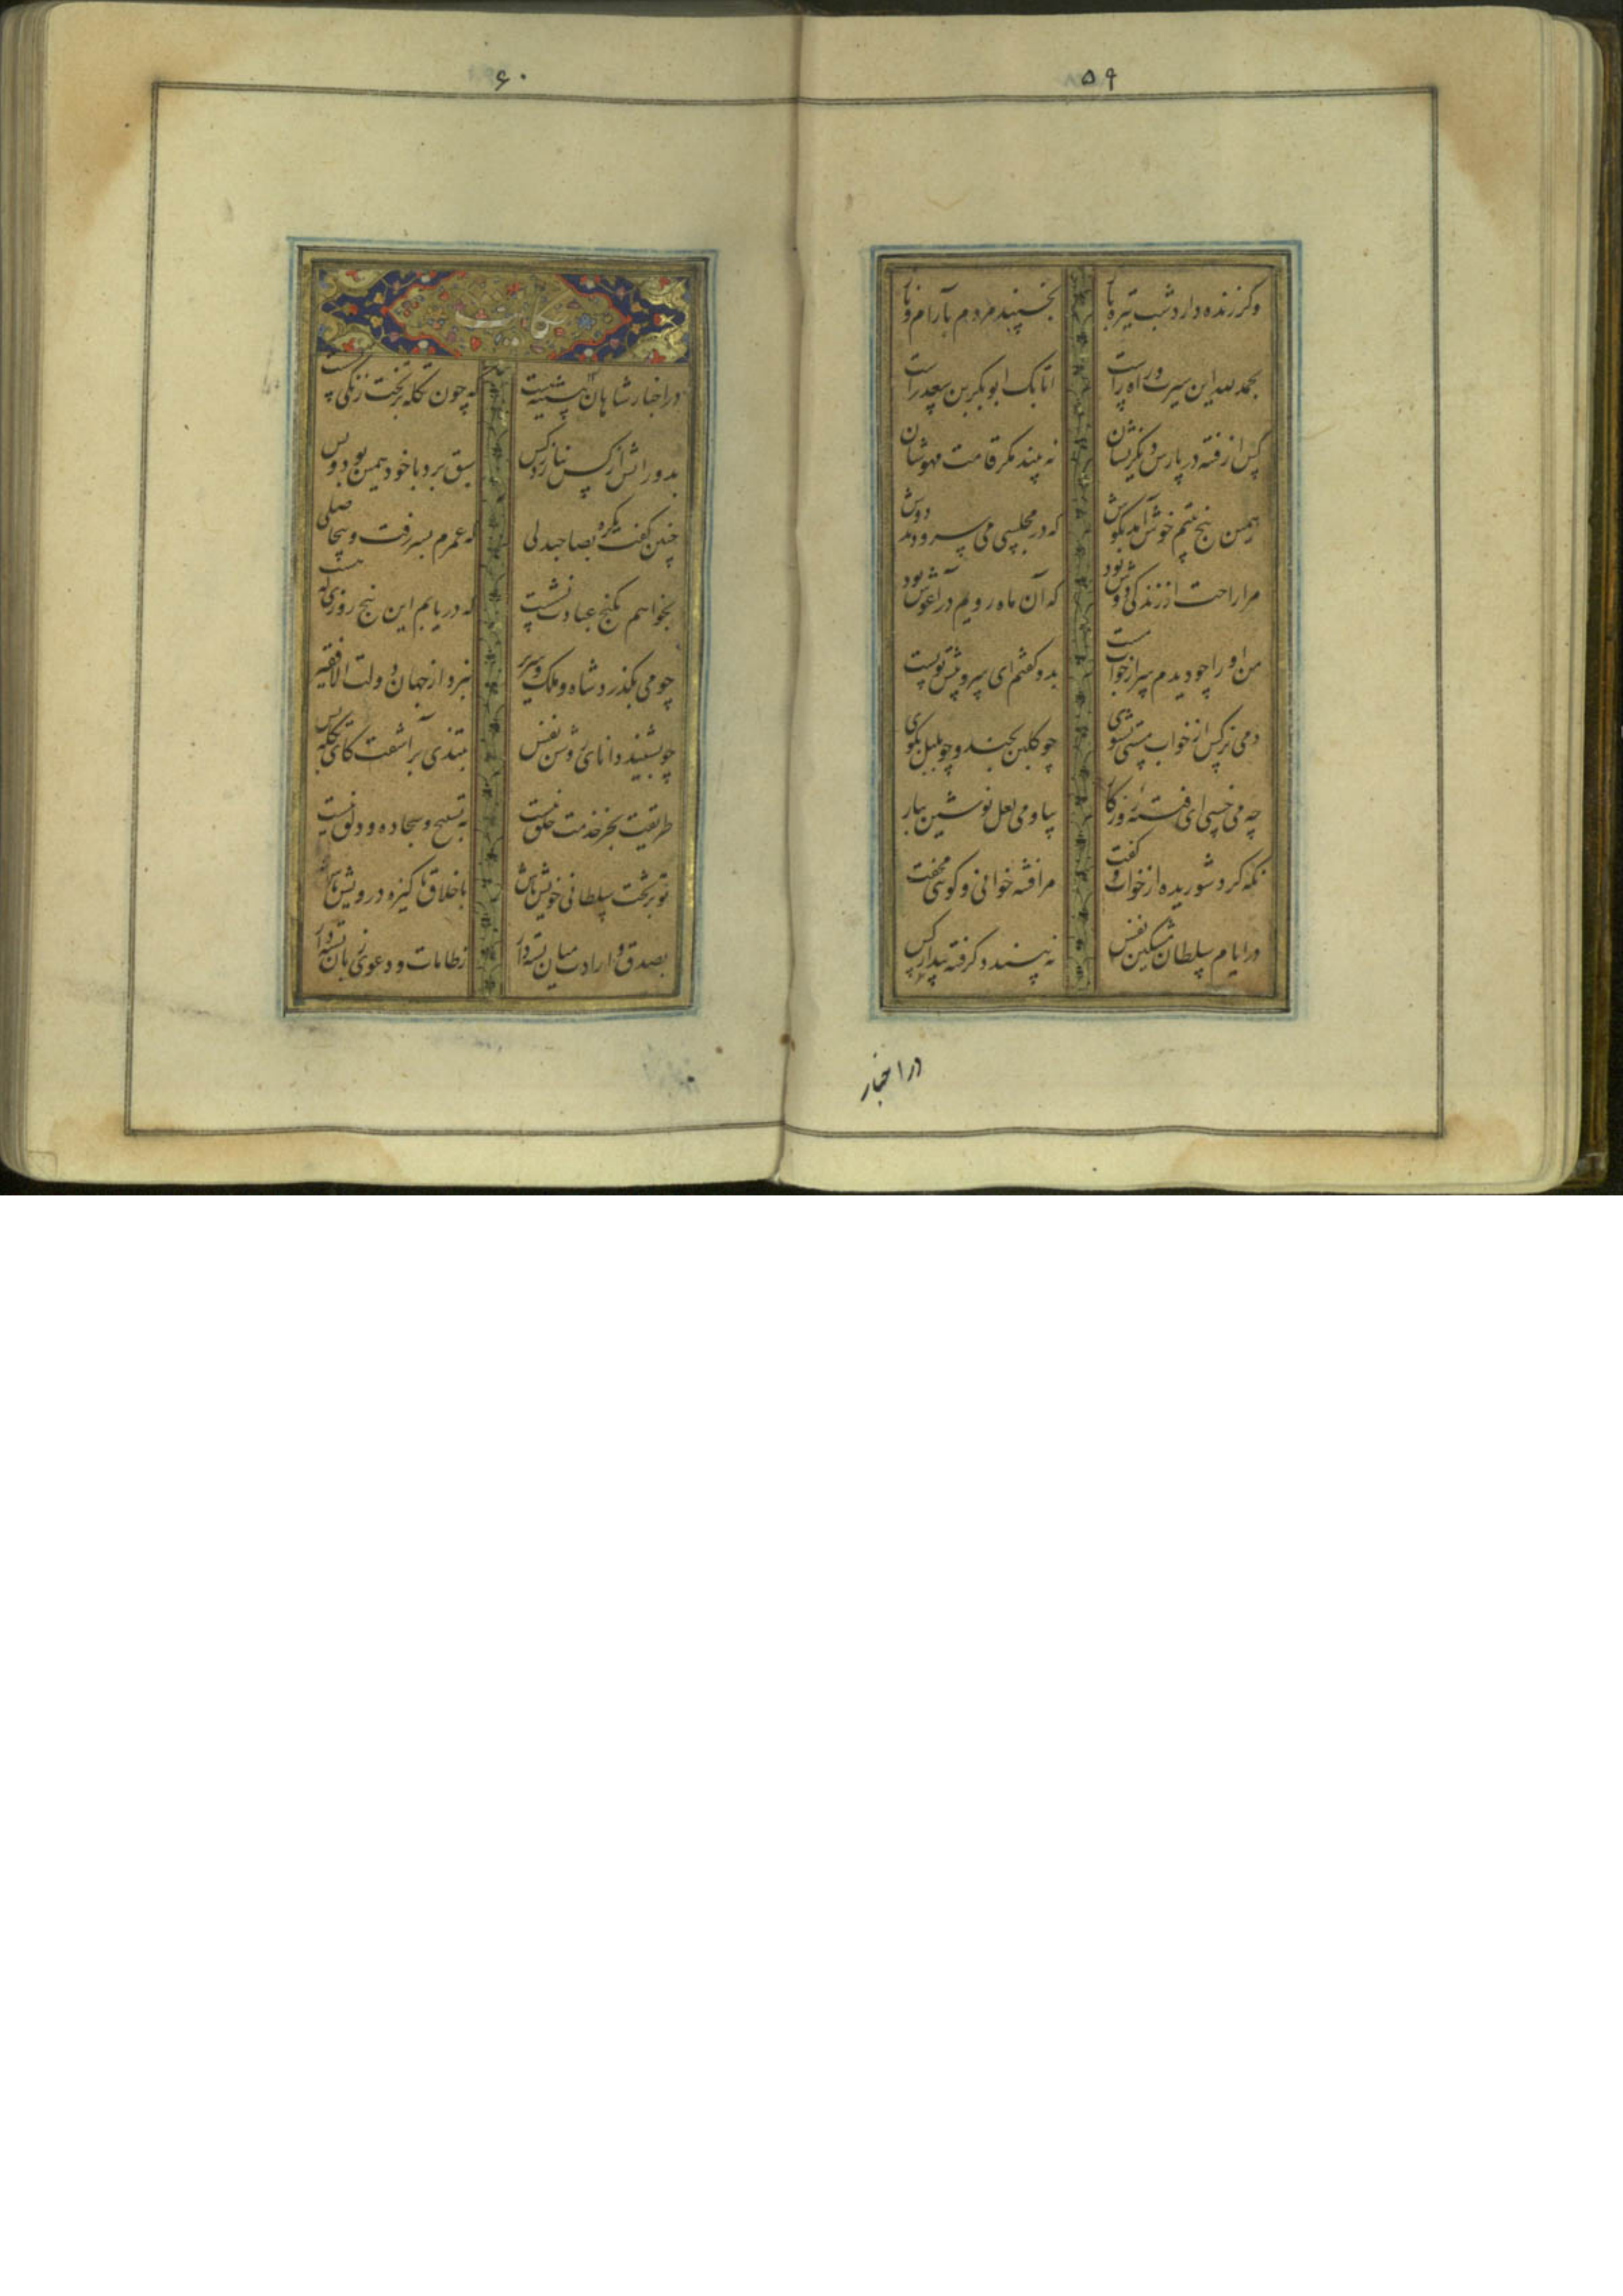 ۵۹
وگر زنده دارد شب تیره باز بخسپند مردم بآرام و ناز
بحمد لله این سیرت و راه راست اتابک ابوبکر بن سعد راست
کس از فتنه در پارس دیگر نشان نه بیند مگر قامت مهوشان
همین پنج بیتم خوش آمد بگوش که در مجلسی می سرودند دوش
مرا راحت از زندگی دوش بود که آن ماه رویم در آغوش بود
من او را چو دیدم سر از خواب مست بدو گفتم ای سرو پیش تو پست
دمی نرگس از خواب مستی بشوی چو گلبن بخند و چو بلبل بگوی
چه می خسپی ای فتنه روزگار بیا و می لعل نوشین بیار
نگه کرد شوریده از خواب و گفت مرا فتنه خوانی و گوئی مخفت
در ایام سلطان نفس نه بیند دگر فتنه بیدار کس
در اخبار
۶۰
حکایت
در اخبار شاهان پیشینه هست که چون تکله بر تخت زنگی نشست
بدورانش از کس نیازرد کس سبق برد با خود همین بود و بس
چنین گفت یکره بصاحبدلی که عمرم بسر رفت و بیحاصلی
بخواهم بکنج عبادت نشست که دریابم این پنج روزی که هست
چو می بگذرد شاه و ملک و سریر نبرد از جهان دولت الا فقیر
چو بشنید دانای روشن نفس بتندی برآشفت کای تکله بس
طریقت بجز خدمت خلق نیست به تسبیح و سجاده و دلق نیست
تو بر تخت سلطانی خویش باش باخلاق پاکیزه درویش باش
بصدق و ارادت میان بسته دار ز طامات و دعوی زبان بسته دار